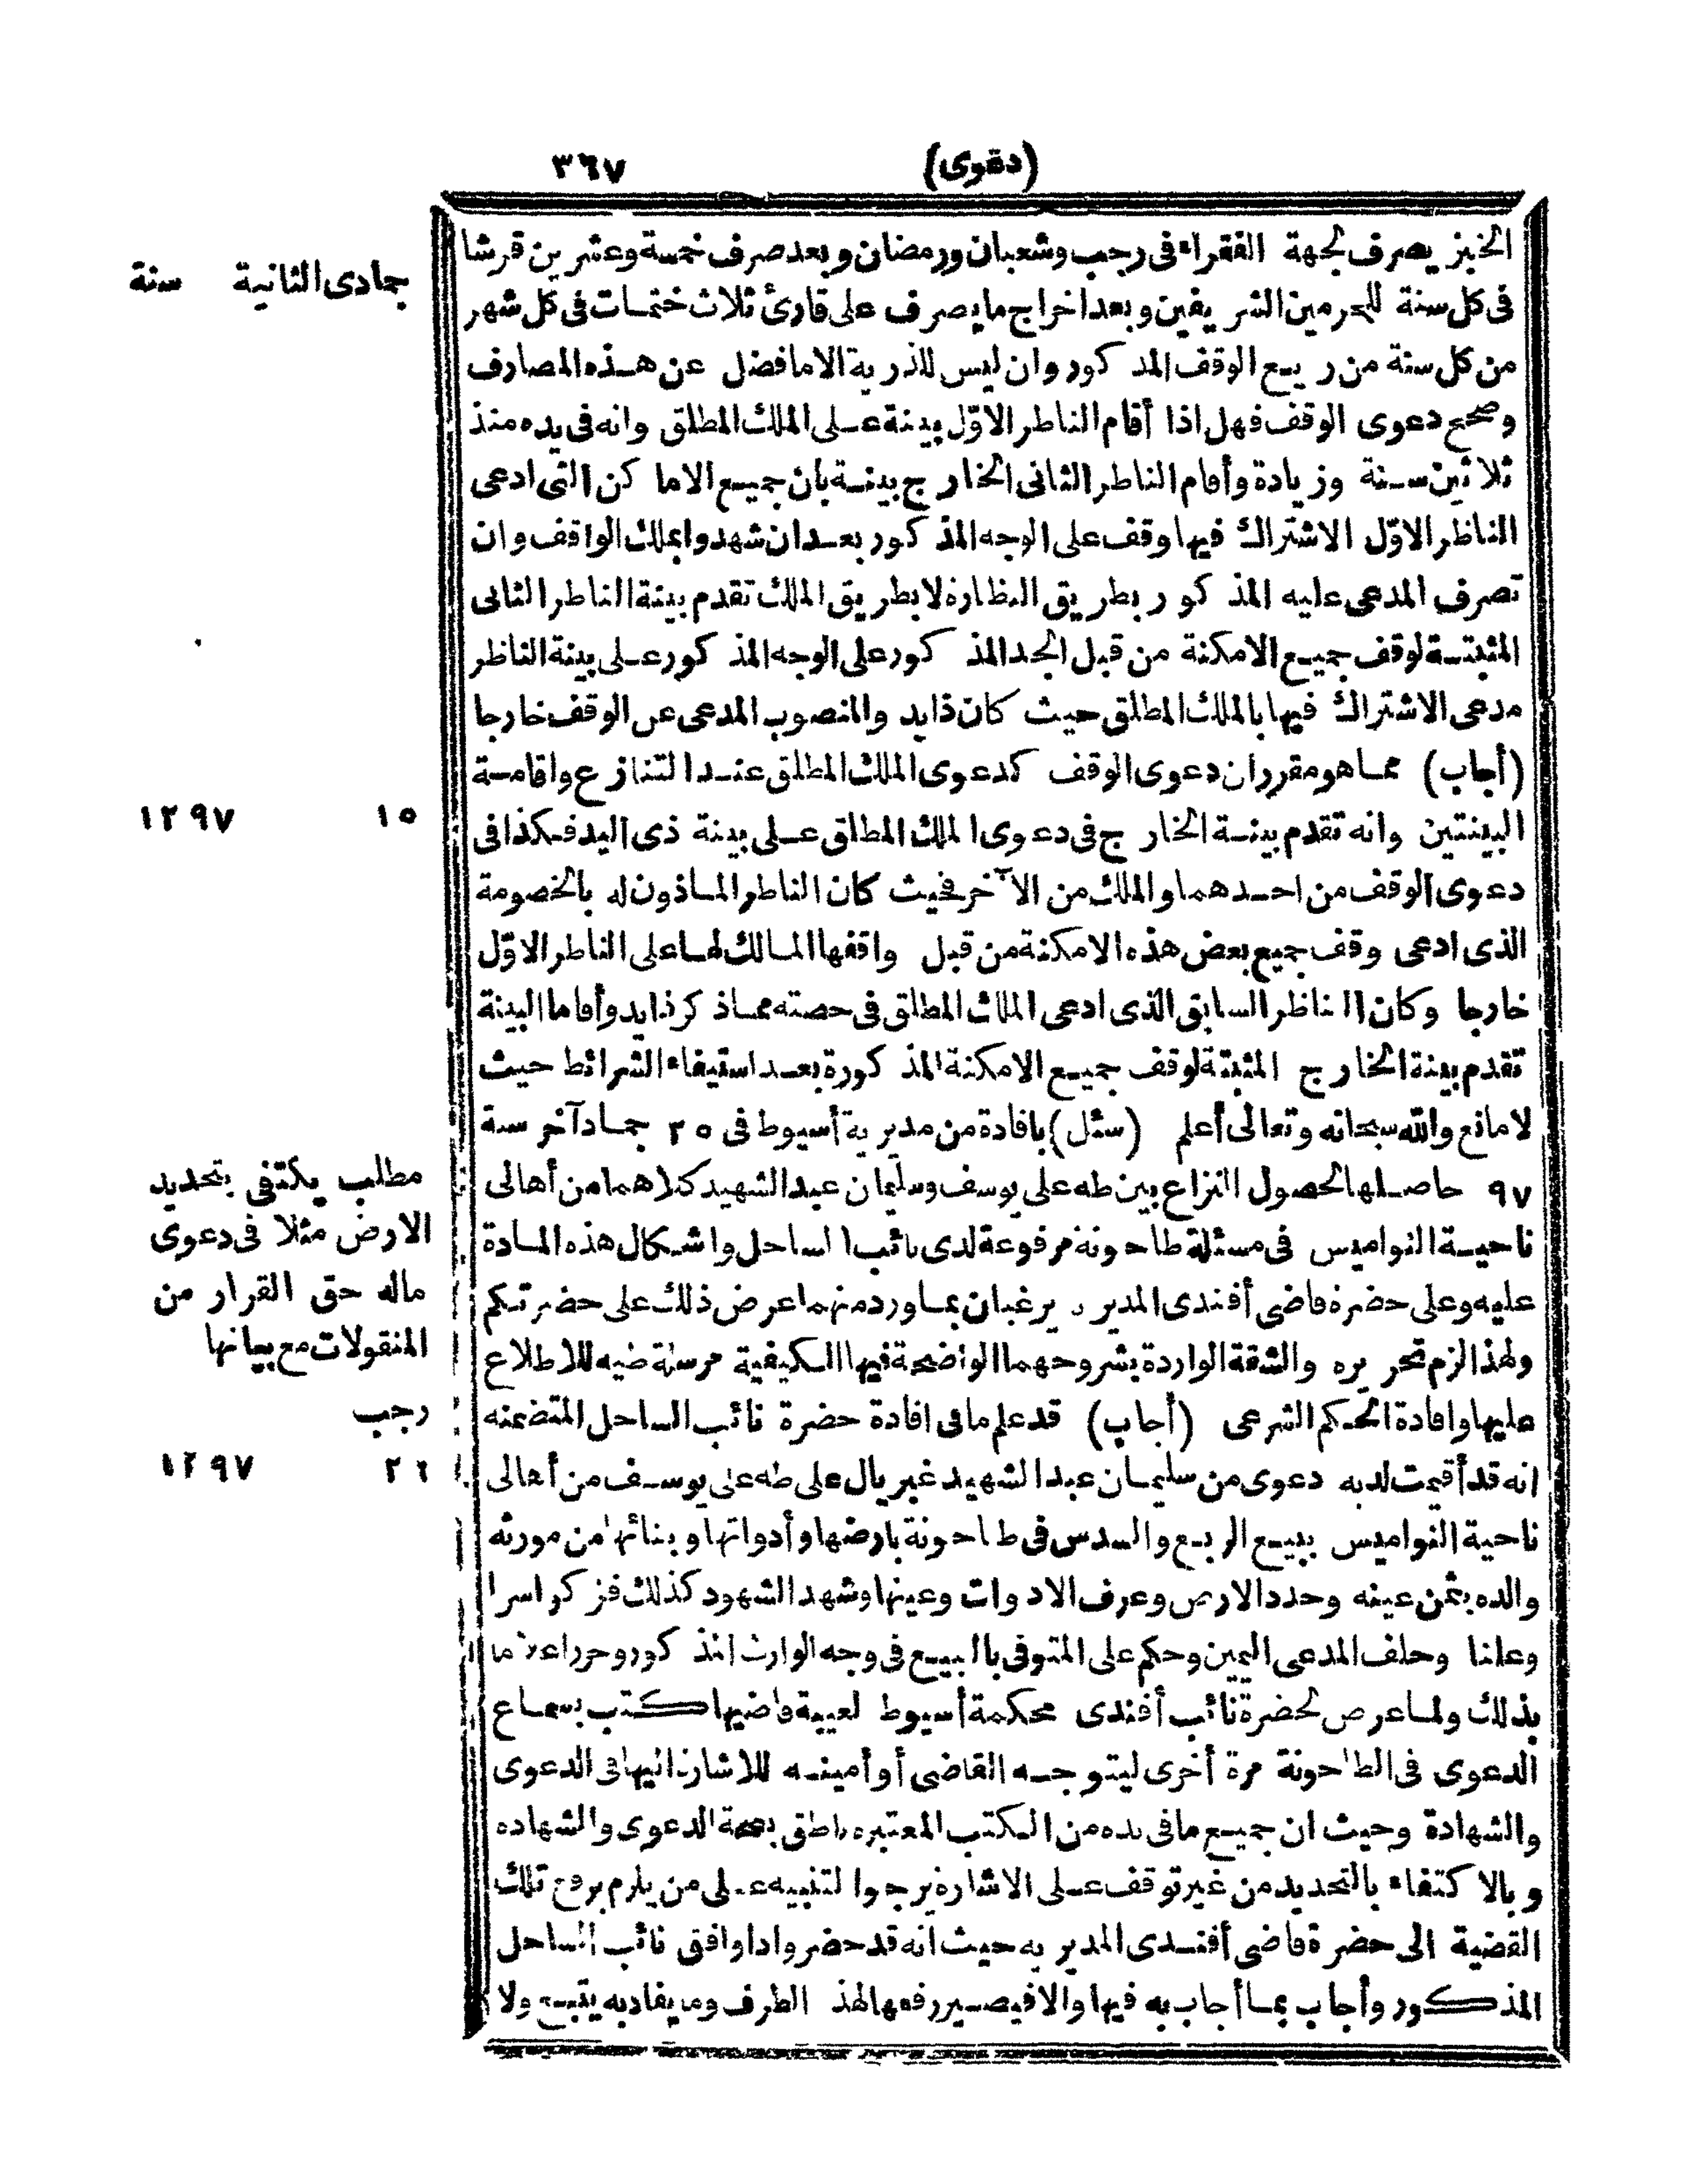 (دعوى) ٣٦٧
الخبز يصرف لجهة الفقراء فى رجب وشعبان ورمضان وبعد صرف خمسة وعشرين قرشا
فى كل سنة للحرمين الشريفين وبعد اخراج ما يصرف على قارئ ثلاث ختمات فى كل شهر
من كل سنة من ريع الوقف المذكور وان ليس للذرية الا ما فضل عن هذه المصارف
وصحح دعوى الوقف فهل اذا أقام الناظر الاوّل بينة على الملك المطلق وانه فى يده منذ
ثلاثين سنة وزيادة وأقام الناظر الثانى الخارج بينة بان جميع الاماكن التى ادعى
الناظر الاوّل الاشتراك فيها وقف على الوجه المذكور بعد ان شهدوا بملك الواقف وان
تصرف المدعى عليه المذكور بطريق النظارة لا بطريق الملك تقدم بينة الناظر الثانى
المثبتة لوقف جميع الامكنة من قبل الجد المذكور على الوجه المذكور على بينة الناظر
مدعى الاشتراك فيها بالملك المطلق حيث كان ذا يد والمنصوب المدعى عن الوقف خارجا
(أجاب) مما هو مقرر ان دعوى الوقف كدعوى الملك المطلق عند التنازع واقامة
البينتين وانه تقدم بينة الخارج فى دعوى الملك المطلق على بينة ذى اليد فكذا فى
دعوى الوقف من احدهما والملك من الآخر فحيث كان الناظر الماذون له بالخصومة
الذى ادعى وقف جميع بعض هذه الامكنة من قبل واقفها المالك لها على الناظر الاوّل
خارجا وكان الناظر السابق الذى ادعى الملك المطلق فى حصته مما ذكر ذا يد وأقاما البينة
تقدم بينة الخارج المثبتة لوقف جميع الامكنة المذكورة بعد استيفاء الشرائط حيث
لا مانع والله سبحانه وتعالى أعلم (سئل) بافادة من مديرية أسيوط فى ٢٥ جماد آخر سنة
٩٧ حاصلها لحصول النزاع بين طه على يوسف وسليمان عبد الشهيد كلاهما من أهالى
ناحية النواميس فى مسئلة طاحونة مرفوعة لدى نائب الساحل واشكال هذه المادة
عليه وعلى حضرة قاضى أفندى المديرية يرغبان بما ورد منهما عرض ذلك على حضرتكم
ولهذا لزم تحريره والشقة الواردة بشروحهما الواضحة فيها الكيفية مرسلة طيه للاطلاع
عليها وافادة الحكم الشرعى (أجاب) قد علم ما فى افادة حضرة نائب الساحل المتضمنه
انه قد أقيمت لديه دعوى من سليمان عبد الشهيد غبريال على طه على يوسف من أهالى
ناحية النواميس ببيع الربع والسدس فى طاحونة بارضها وأدواتها وبنائها من مورثه
والده بثمن عينه وحدد الارض وعرف الادوات وعينها وشهد الشهود كذلك فزكى سرا
وعلنا وحلف المدعى اليمين وحكم على المتوفى بالبيع فى وجه الوارث المذكور وحرر اعلاما
بذلك ولما عرض لحضرة نائب أفندى محكمة أسيوط لغيبة قاضيها كتب بسماع
الدعوى فى الطاحونة مرة أخرى ليتوجه القاضى أو أمينه للاشارة اليها فى الدعوى
والشهادة وحيث ان جميع ما فى يده من الكتب المعتبره ناطق بصحة الدعوى والشهاده
وبالاكتفاء بالتحديد من غير توقف على الاشارة يرجو التنبيه على من يلزم برفع تلك
القضية الى حضرة قاضى أفندى المديريه حيث انه قد حضر واذا وافق نائب الساحل
المذكور وأجاب بما أجاب به فيها والا فيصير رفعها لهذا الطرف وما يفاد به يتبع ولا
جمادى الثانية سنة
١٥ ١٢٩٧
مطلب يكتفى بتحديد
الارض مثلا فى دعوى
ماله حق القرار من
المنقولات مع بيانها
رجب
٢٦ ١٢٩٧